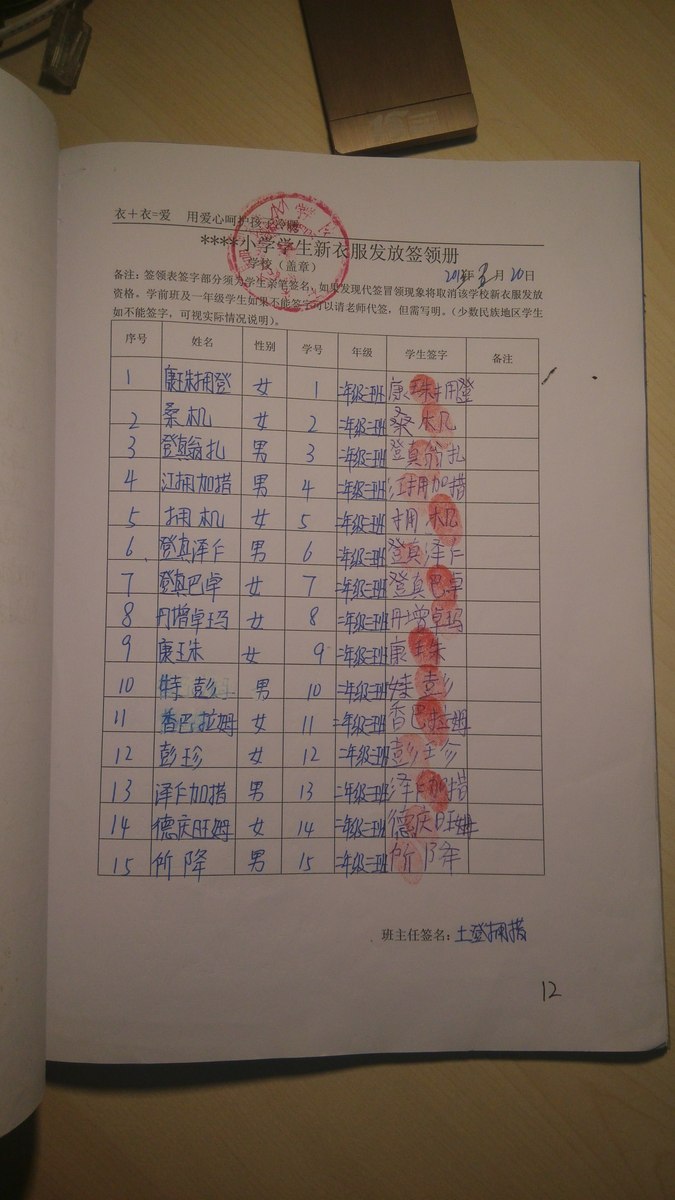 衣＋衣=爱 用爱心呵护孩子冷暖
****小学学生新衣服发放签领册
学校（盖章） 年 月 20日
备注：签领表签字部分须为学生亲笔签名，如果发现代签冒领现象将取消该学校新衣服发放
资格。学前班及一年级学生如果不能签字可以请老师代签，但需写明。（少数民族地区学生
如不能签字，可视实际情况说明）。
序号 姓名 性别 学号 年级 学生签字 备注
1 康珠拥登 女 1 二年级二班 康珠拥登
2 桑机 女 2 二年级二班 桑机
3 登真翁扎 男 3 二年级二班 登真翁扎
4 江拥加措 男 4 二年级二班 江拥加措
5 拥机 女 5 二年级二班 拥机
6 登真泽仁 男 6 二年级二班 登真泽仁
7 登真巴卓 女 7 二年级二班 登真巴卓
8 丹增卓玛 女 8 二年级二班 丹增卓玛
9 康珠 女 9 二年级二班 康珠
10 特彭 男 10 二年级二班 彭
11 香巴拉姆 女 11 二年级二班 香巴拉姆
12 彭珍 女 12 二年级二班 彭珍
13 泽仁加措 男 13 二年级二班 泽仁加措
14 德庆旺姆 女 14 二年级二班 德庆旺姆
15 所降 男 15 二年级二班 所降
班主任签名：土登拥措
12